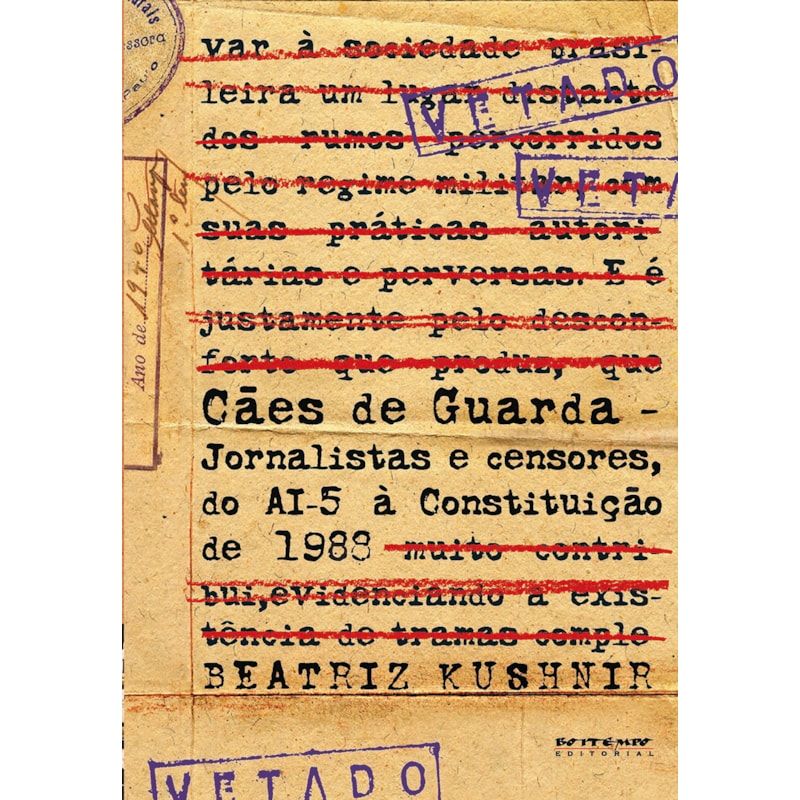 urais
ssora
Paulo
var à sociedade brasi-
leira um lugar distante
dos rumos percorridos
pelo regime militar, com
suas práticas autori
tárias e perversas. E é
justamente pelo descon-
forto que produz, que
Cães de Guarda -
Jornalistas e censores,
do AI-5 à Constituição
de 1988 muito contri
bui, evidenciando a exis-
tência de tramas comple
BEATRIZ KUSHNIR
VETADO
VETA
Ano de 19
1º
BOITEMPO
EDITORIAL
VETADO